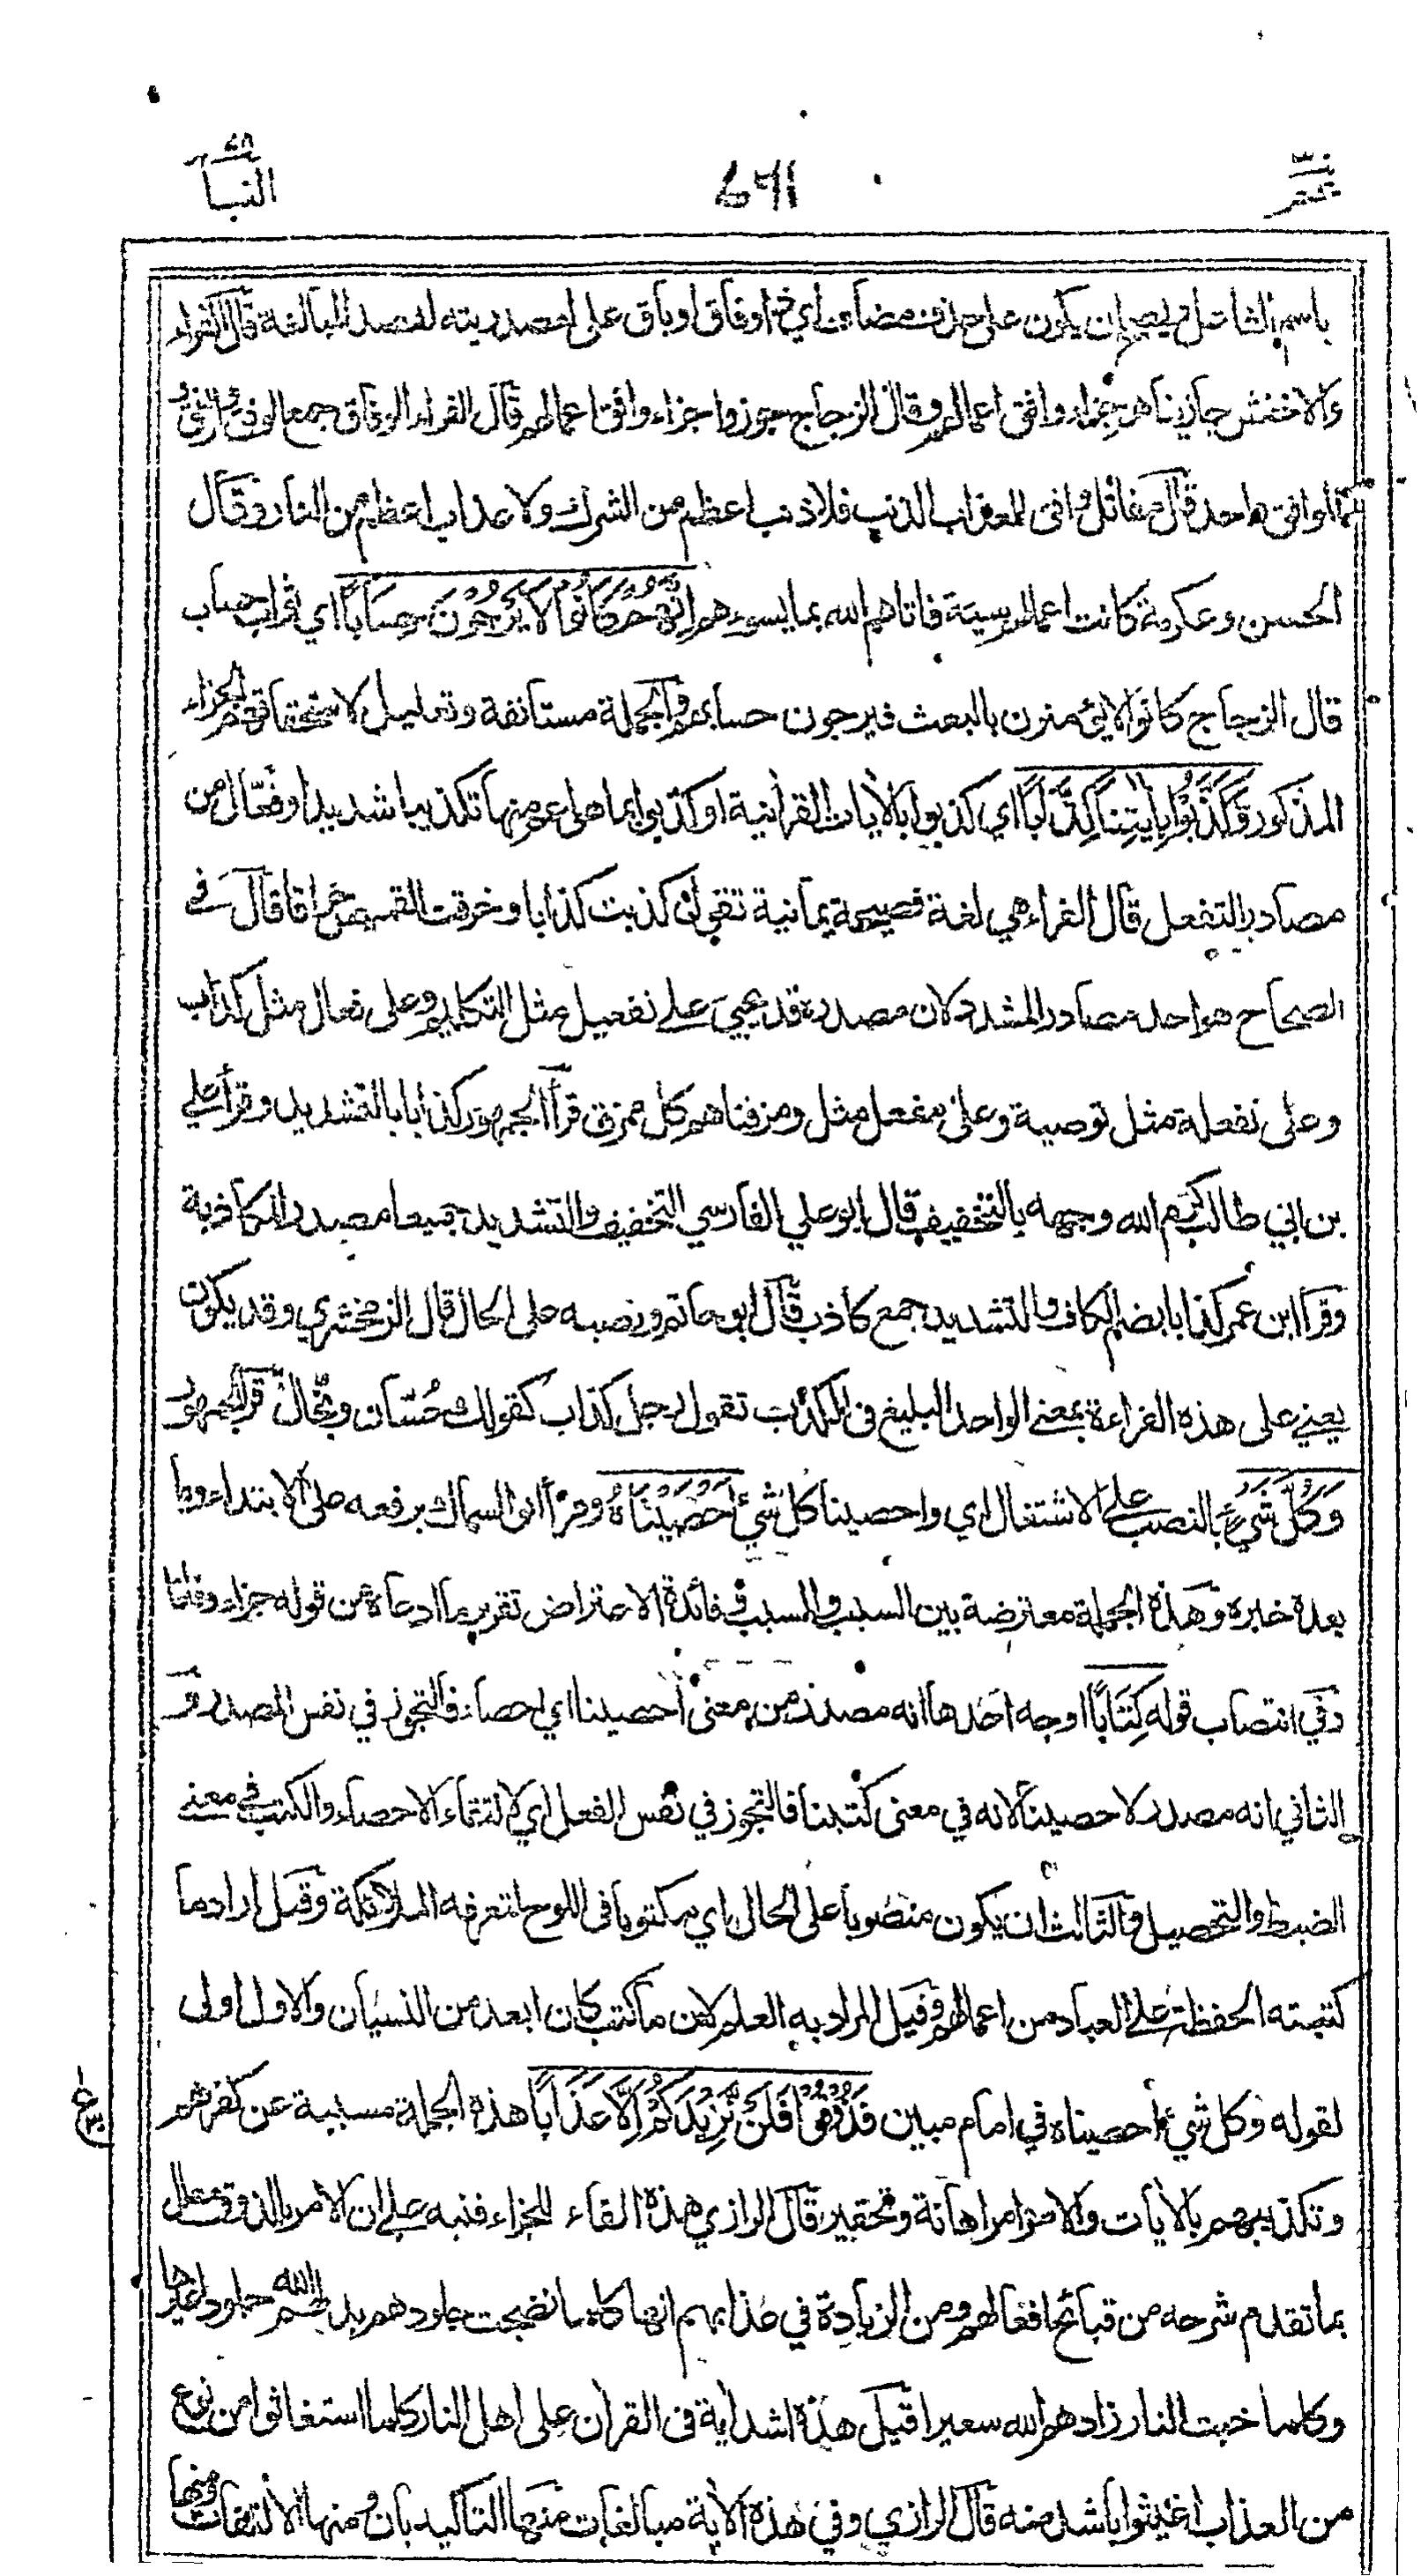 عم ٣٠
٤٩١
النبأ ٧٨
باسم الفاعل او يصح ان يكون على حذف مضاف اي ذا وفاق او باق على مصدريته لقصد المبالغة قال الفراء
والاخفش جازيناهم جزاء وافق اعمالهم وقال الزجاج جوزوا جزاء وافق اعمالهم قال الفراء الوفاق جمع الوفق والوفق
والموافق واحد قال مقاتل وافق العذاب الذنب فلا ذنب اعظم من الشرك ولا عذاب اعظم من النار وقال
الحسن وعكرمة كانت اعمالهم سيئة فاتاهم الله بما يسوءهم إِنَّهُمْ كَانُوا لَا يَرْجُونَ حِسَابًا اي ثواب حساب
قال الزجاج كانوا لا يؤمنون بالبعث فيرجون حسابهم والجملة مستأنفة وتعليل لاستحقاقهم الجزاء
المذكور وَكَذَّبُوا بِآيٰتِنَا كِذَّابًا اي كذبوا بالآيات القرآنية او كذبوا بما هو اعم منها تكذيبا شديدا وفعّال من
مصادر التفعل قال الفراء هي لغة فصيحة يمانية تقول كذبت كذابا وخرقت القميص خراقا قال في
الصحاح هو احد مصادر المشدد لان مصدره قد يجيئ على تفعيل مثل التكليم وعلى فعال مثل كذاب
وعلى تفعلة مثل توصية وعلى مفعل مثل ومزقناهم كل ممزق قرأ الجمهور كذابا بالتشديد وقرأ علي
بن ابي طالب كرم الله وجهه بالتخفيف قال ابو علي الفارسي التخفيف والتشديد جميعا مصدر المكاذبة
وقرأ ابن عمر كذابا بضم الكاف والتشديد جمع كاذب قال ابو حاتم ونصبه على الحال قال الزمخشري وقد يكون
يعني على هذه القراءة بمعنى الواحد البليغ في الكذب تقول رجل كذاب كقولك حُسّان وبخّال قرأ الجمهور
وَكُلَّ شَيْءٍ بالنصب على الاشتغال اي واحصينا كل شيئ أَحْصَيْنَاهُ وقرأ ابو السماك برفعه على الابتداء وما
بعده خبره وهذه الجملة معترضة بين السبب والمسبب وفائدة الاعتراض تقرير ما ادعاه من قوله جزاء وفاقا
وفي انتصاب قوله كِتَابًا اوجه احدها انه مصدر من معنى احصينا اي احصاء فالتجوز في نفس المصدر و
الثاني انه مصدر لاحصينا لانه في معنى كتبنا فالتجوز في نفس الفعل اي لالتقاء الاحصاء والكتب في معنى
الضبط والتحصيل والثالث ان يكون منصوبا على الحال اي مكتوبا في اللوح لتعرفه الملائكة وقيل اراد ما
كتبته الحفظة على العباد من اعمالهم وقيل المراد به العلم لان ما كتب كان ابعد من النسيان والاول اولى
لقوله وكل شيئ احصيناه في امام مبين فَذُوقُوا فَلَنْ نَزِيدَكُمْ إِلَّا عَذَابًا هذه الجملة مسببة عن كفرهم
وتكذيبهم بالآيات والامر امر اهانة وتحقير قال الرازي هذه الفاء للجزاء فنبه على ان الامر بالذوق معلل
بما تقدم شرحه من قبائح افعالهم ومن الزيادة في عذابهم انها كلما نضجت جلودهم بدلهم الله جلودا غيرها
وكلما خبت النار زادهم الله سعيرا قيل هذه اشد آية في القرآن على اهل النار كلما استغاثوا من نوع
من العذاب اغيثوا باشد منه قال الرازي وفي هذه الآية مبالغات منها التاكيد بان ومنها الالتفات ومنها